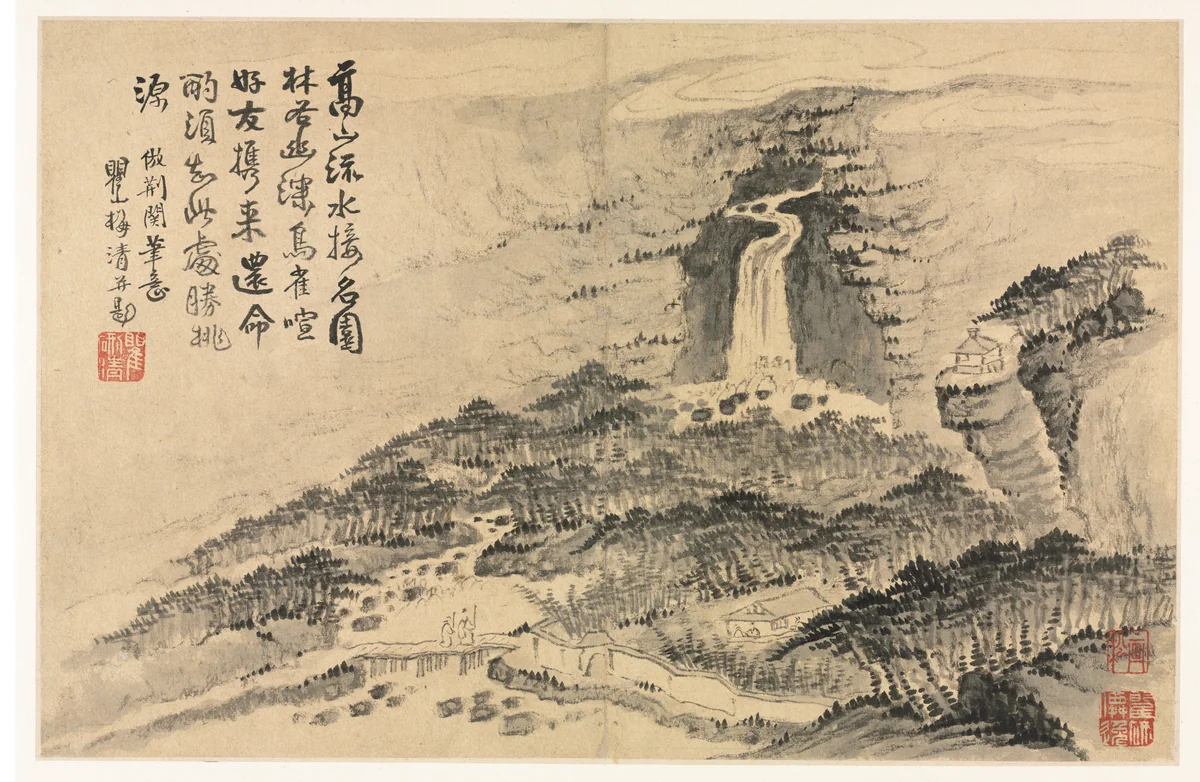 高山流水接名園
林谷幽深鳥雀喧
好友携来還命
酌須知此處勝桃
源
倣荆関筆意
瞿山梅清并題